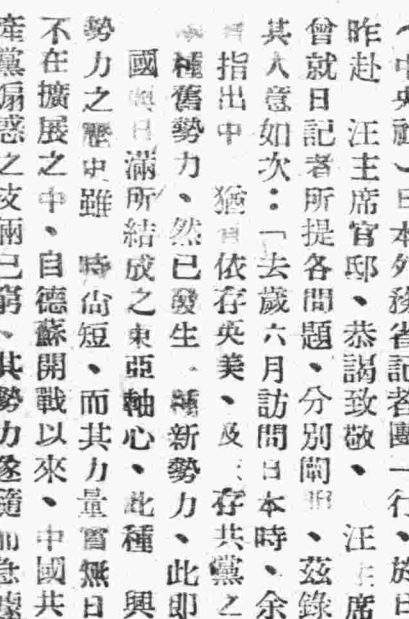 （中央社）日本外務省記者團一行、於日
昨赴　汪主席官邸、恭謁致敬、　汪主席
曾就日記者所提各問題、分別闡明、茲錄
其大意如次：「去歲六月訪問日本時、余
指出中　猶有依存英美、及　存共黨之
種舊勢力、然已發生　種新勢力、此即
國與日滿所結成之東亞軸心、此種　興
勢力之歷史雖　時尙短、而其力量實無日
不在擴展之中、自德蘇開戰以來、中國共
產黨煽惑之技倆已窮、其勢力遂隨而急遽